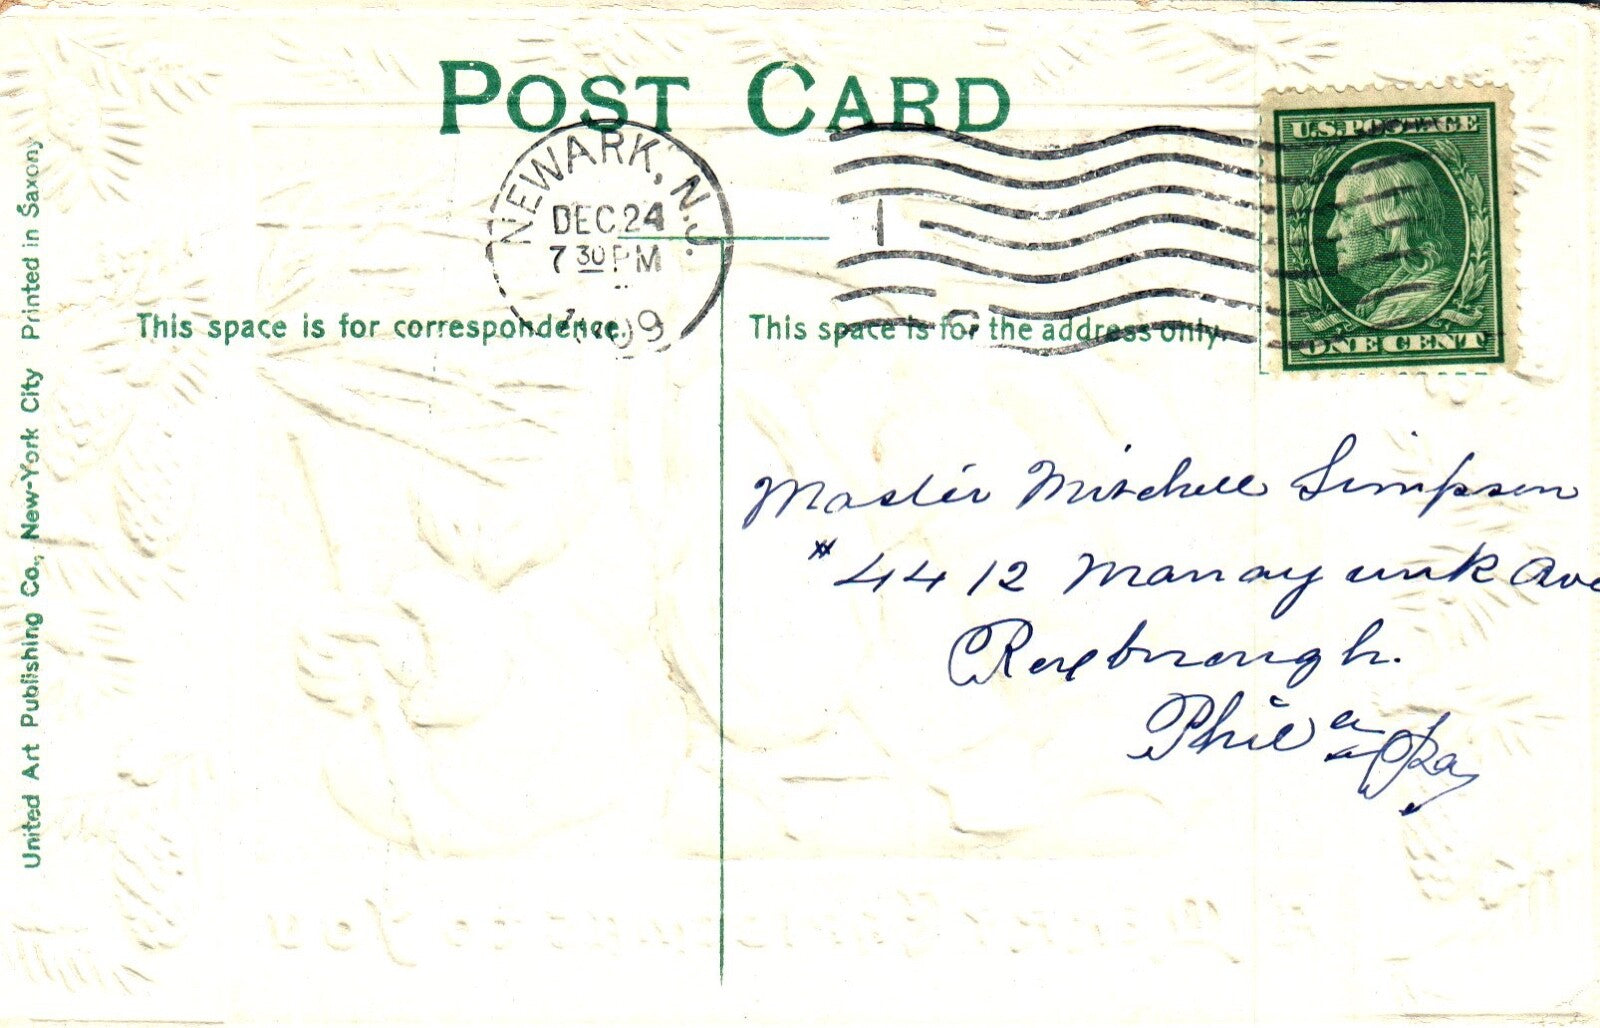 POST CARD
U.S. POSTAGE
ONE CENT
NEWARK, N.J.
DEC 24
7 30 PM
1909
1
This space is for correspondence.
This space is for the address only.
Master Mitchell Simpson
# 4412 Manayunk Ave
Roxborough.
Phila Pa
United Art Publishing Co., New-York City Printed in Saxony
A Merry Christmas to You